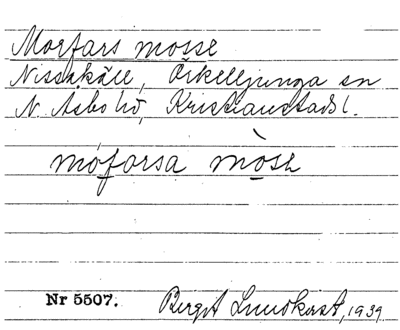 Morfars mosse
Nissakäll, Örkelljunga sn
N. Åsbo hd, Kristianstads l.
móforsa mòsե
Nr 5507. Bergit Lundkvist, 1939